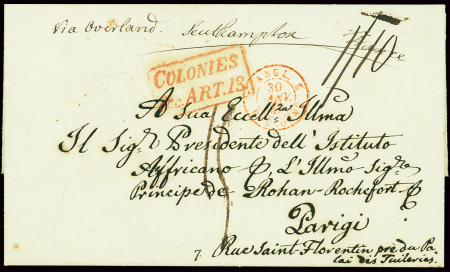 Via Overland. Southampton
1/10
COLONIES
&c. ART. 13.
ANGL.
30
A Sua Eccell.za Illma
Il Sig.r Presidente dell'Istituto
Affricano &, L'Illmo Sig.re
Principe de Rohan-Rochefort &
Parigi
7. Rue Saint-Florentin pre du Pa-
lai des Tuileries.